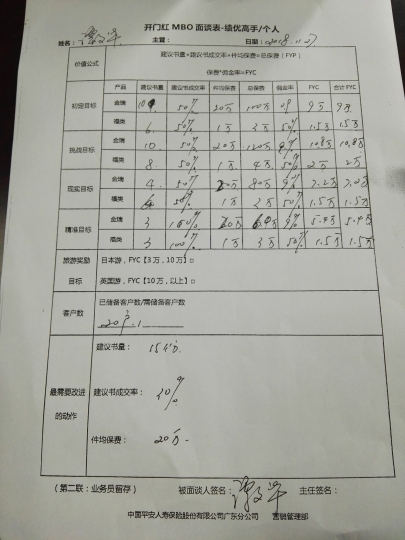 开门红 MBO 面谈表-绩优高手/个人
姓名： 主管： 日期：2018.11.27
价值公式 建议书量*建议书成交率*件均保费=总保费（FYP）
保费*佣金率=FYC
产品 建议书量 建议书成交率 件均保费 总保费 佣金率 FYC 合计 FYC
初定目标 金瑞 10 50% 20万 100万 9% 9万 9万
福类 6 50% 1万 3万 50% 1.5万 1.5万
挑战目标 金瑞 10 50% 20万 120万 9% 10.8万 10.8万
福类 8 50% 1万 4万 50% 2万 2万
现实目标 金瑞 4 50% 20万 80万 9% 7.2万 7.2万
福类 50% 1万 3万 50% 1.5万 1.5万
精准目标 金瑞 3 100% 20万 9% 5.4万 5.4万
福类 3 100% 1万 3万 50% 1.5万 1.5万
旅游奖励 日本游，FYC【3 万，10 万】□
目标 英国游，FYC【10 万，以上】□
客户数 已储备客户数/需储备客户数
20户
最需要改进的动作
建议书量：
建议书成交率：
件均保费： 20万
（第二联：业务员留存） 被面谈人签名： 主任签名：
中国平安人寿保险股份有限公司广东分公司 营销管理部